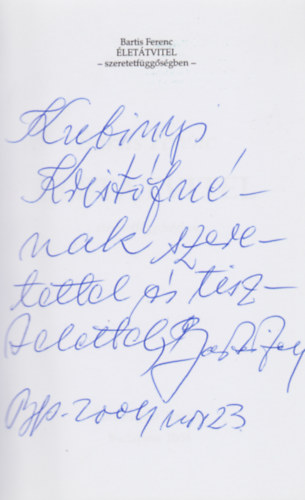 Bartis Ferenc
ÉLETÁTVITEL
– szeretetfüggőségben –
Kubinyi
Kristófné-
nak szere-
tettel és tisz-
telettel
Bp. 2004 nov 23